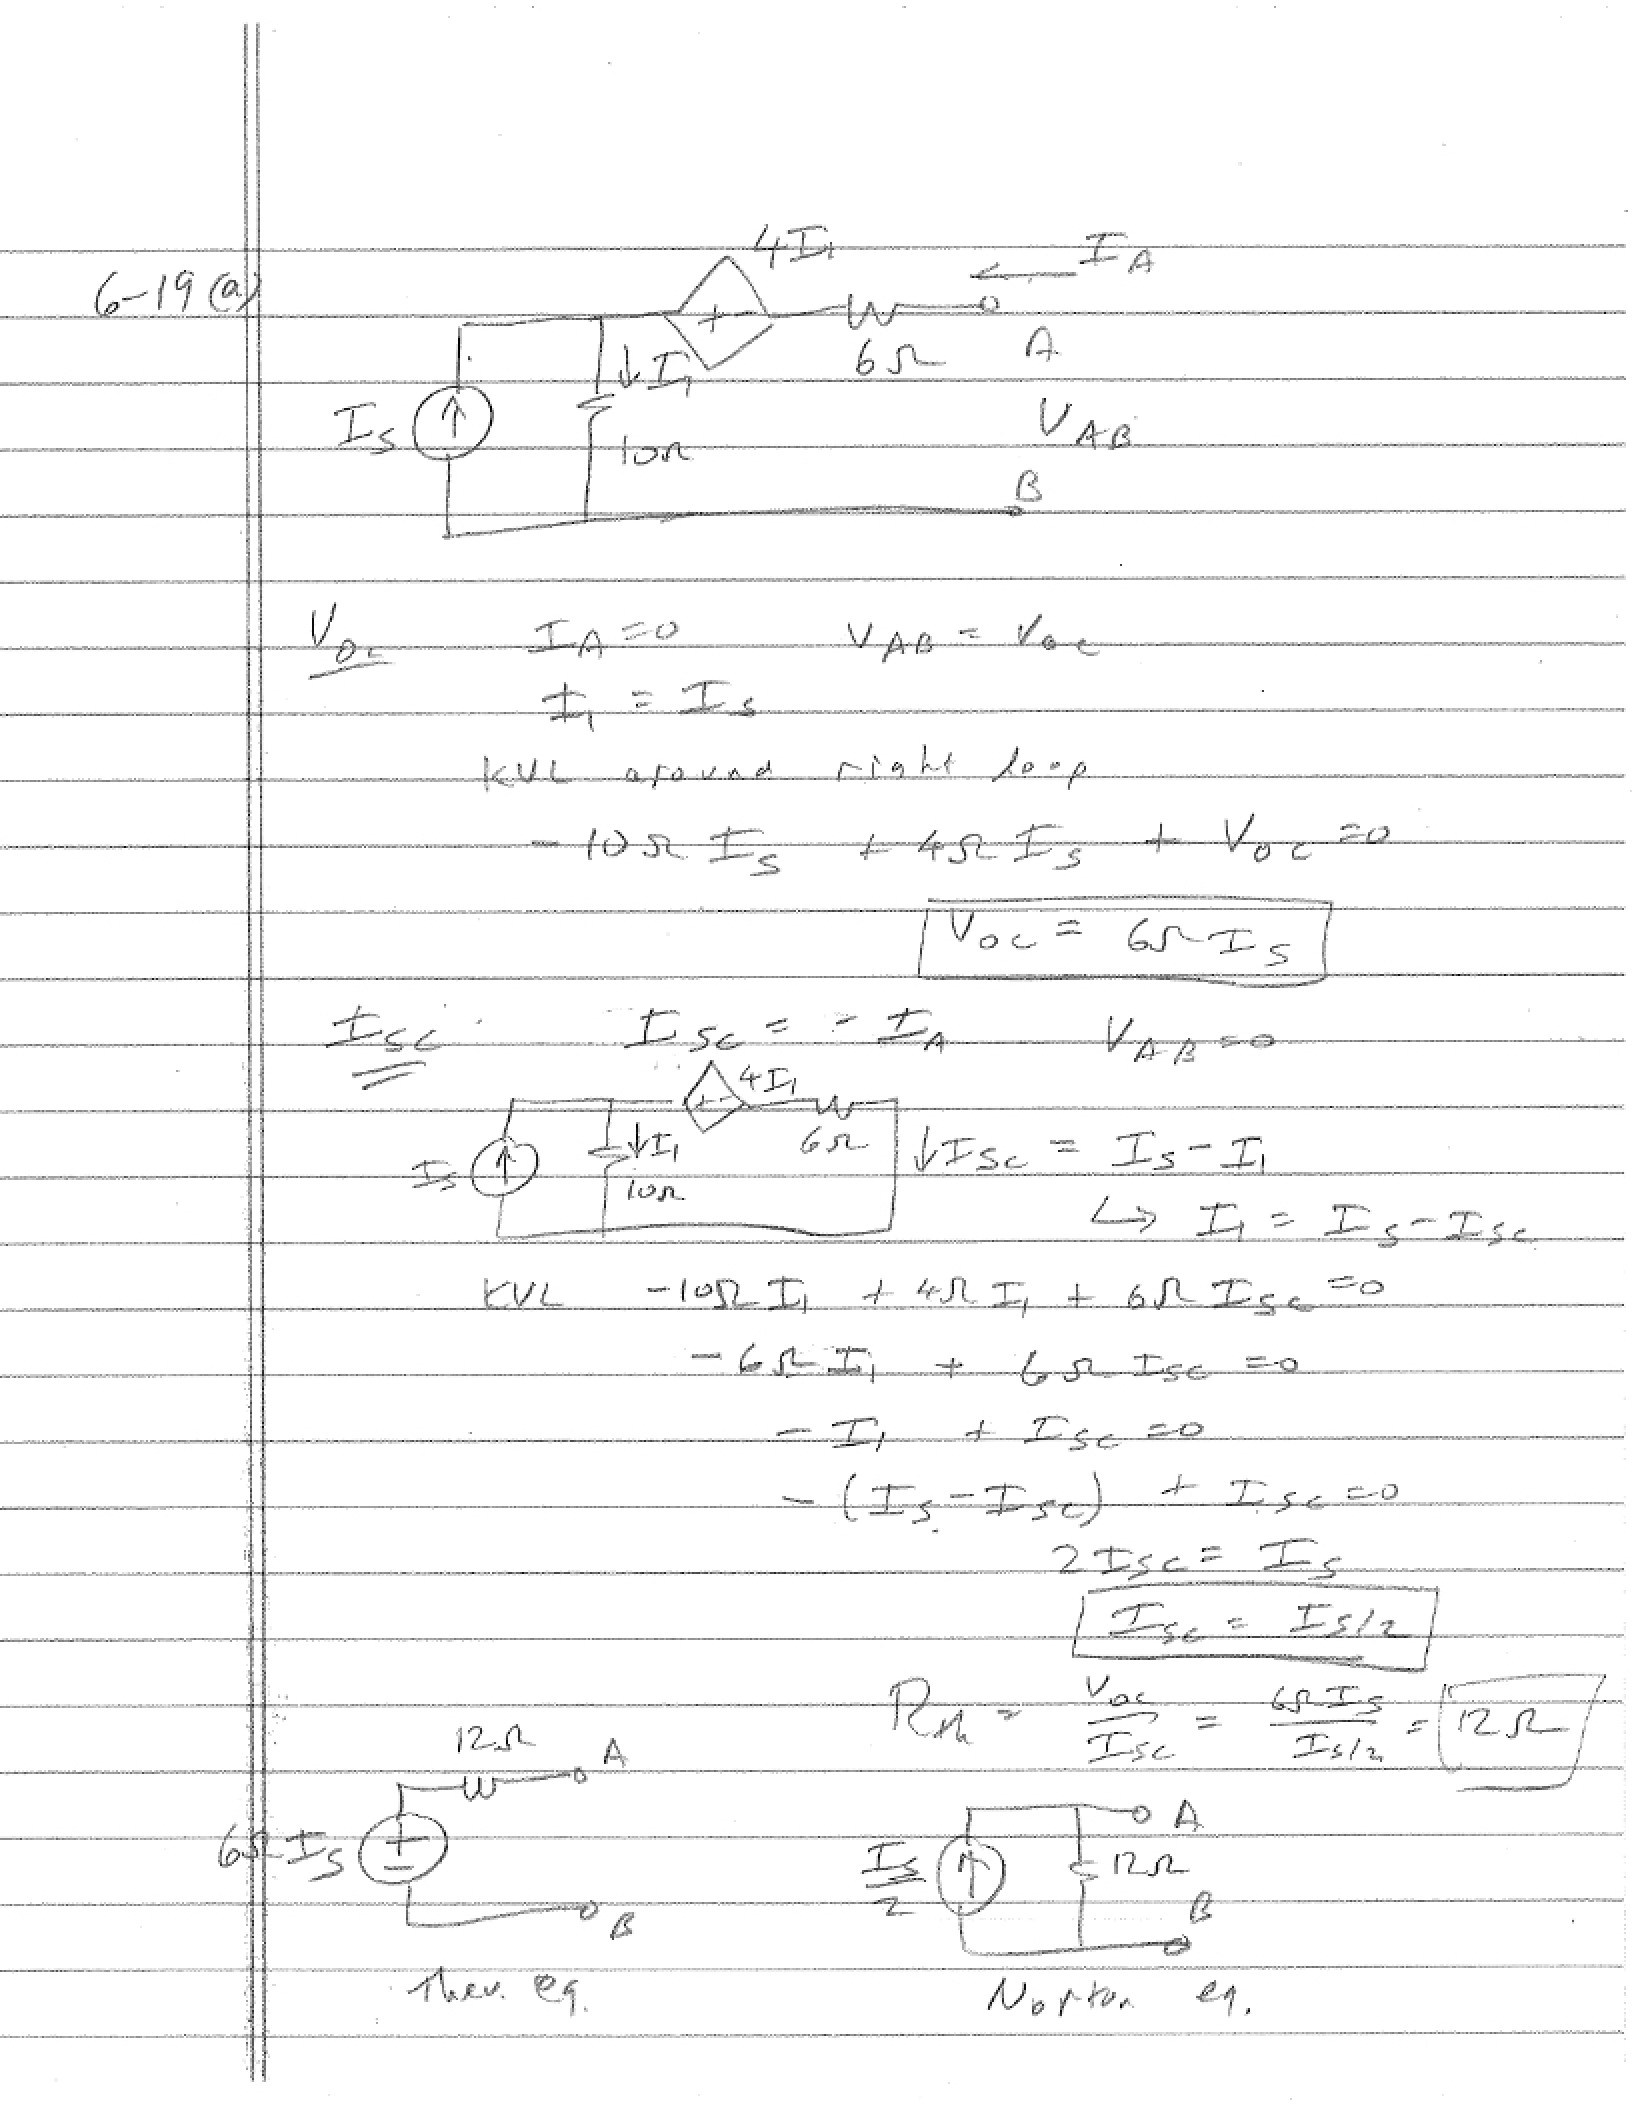 4I₁
I_A
6-19(a)
+ -
6Ω
A
I₁
I_S
10Ω
V_AB
B
V_oc I_A = 0 V_AB = V_oc
I₁ = I_S
KVL around right loop
-10Ω I_S + 4Ω I_S + V_oc = 0
V_oc = 6Ω I_S
I_SC I_SC = -I_A V_AB = 0
4I₁
+ -
6Ω
I_S
I₁
10Ω
↓I_SC = I_S - I₁
↳ I₁ = I_S - I_SC
KVL -10Ω I₁ + 4Ω I₁ + 6Ω I_SC = 0
-6Ω I₁ + 6Ω I_SC = 0
-I₁ + I_SC = 0
-(I_S - I_SC) + I_SC = 0
2I_SC = I_S
I_SC = I_S/2
R_th = V_oc/I_SC = 6Ω I_S/I_S/2 = 12Ω
12Ω
A
6Ω I_S
+
-
B
Thev. eq.
A
I_S/2
12Ω
B
Norton eq.